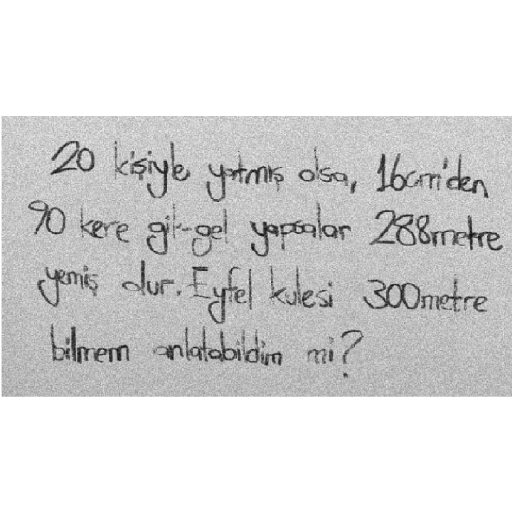 20 kişiyle yatmış olsa, 16cm'den
90 kere git-gel yapsalar 288metre
yemiş olur. Eyfel kulesi 300metre
bilmem anlatabildim mi?